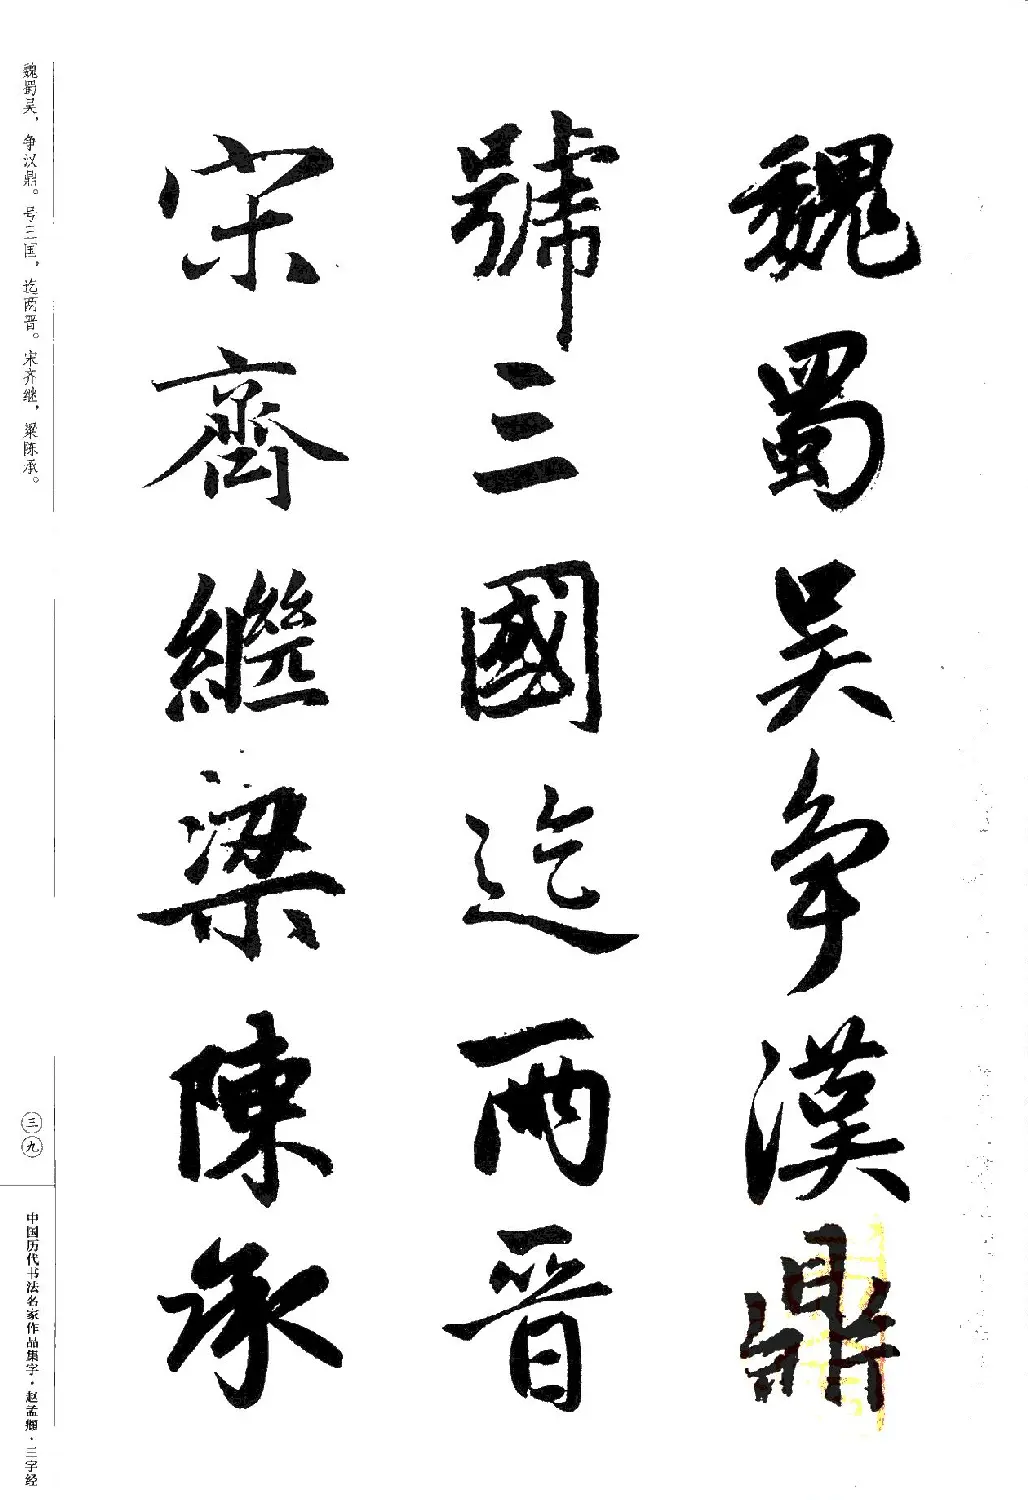 魏蜀吴争漢鼎
號三國迄兩晋
宋齊繼梁陳承
魏蜀吴，争汉鼎。号三国，迄两晋。宋齐继，梁陈承。
三九
中国历代书法名家作品集字·赵孟頫·三字经